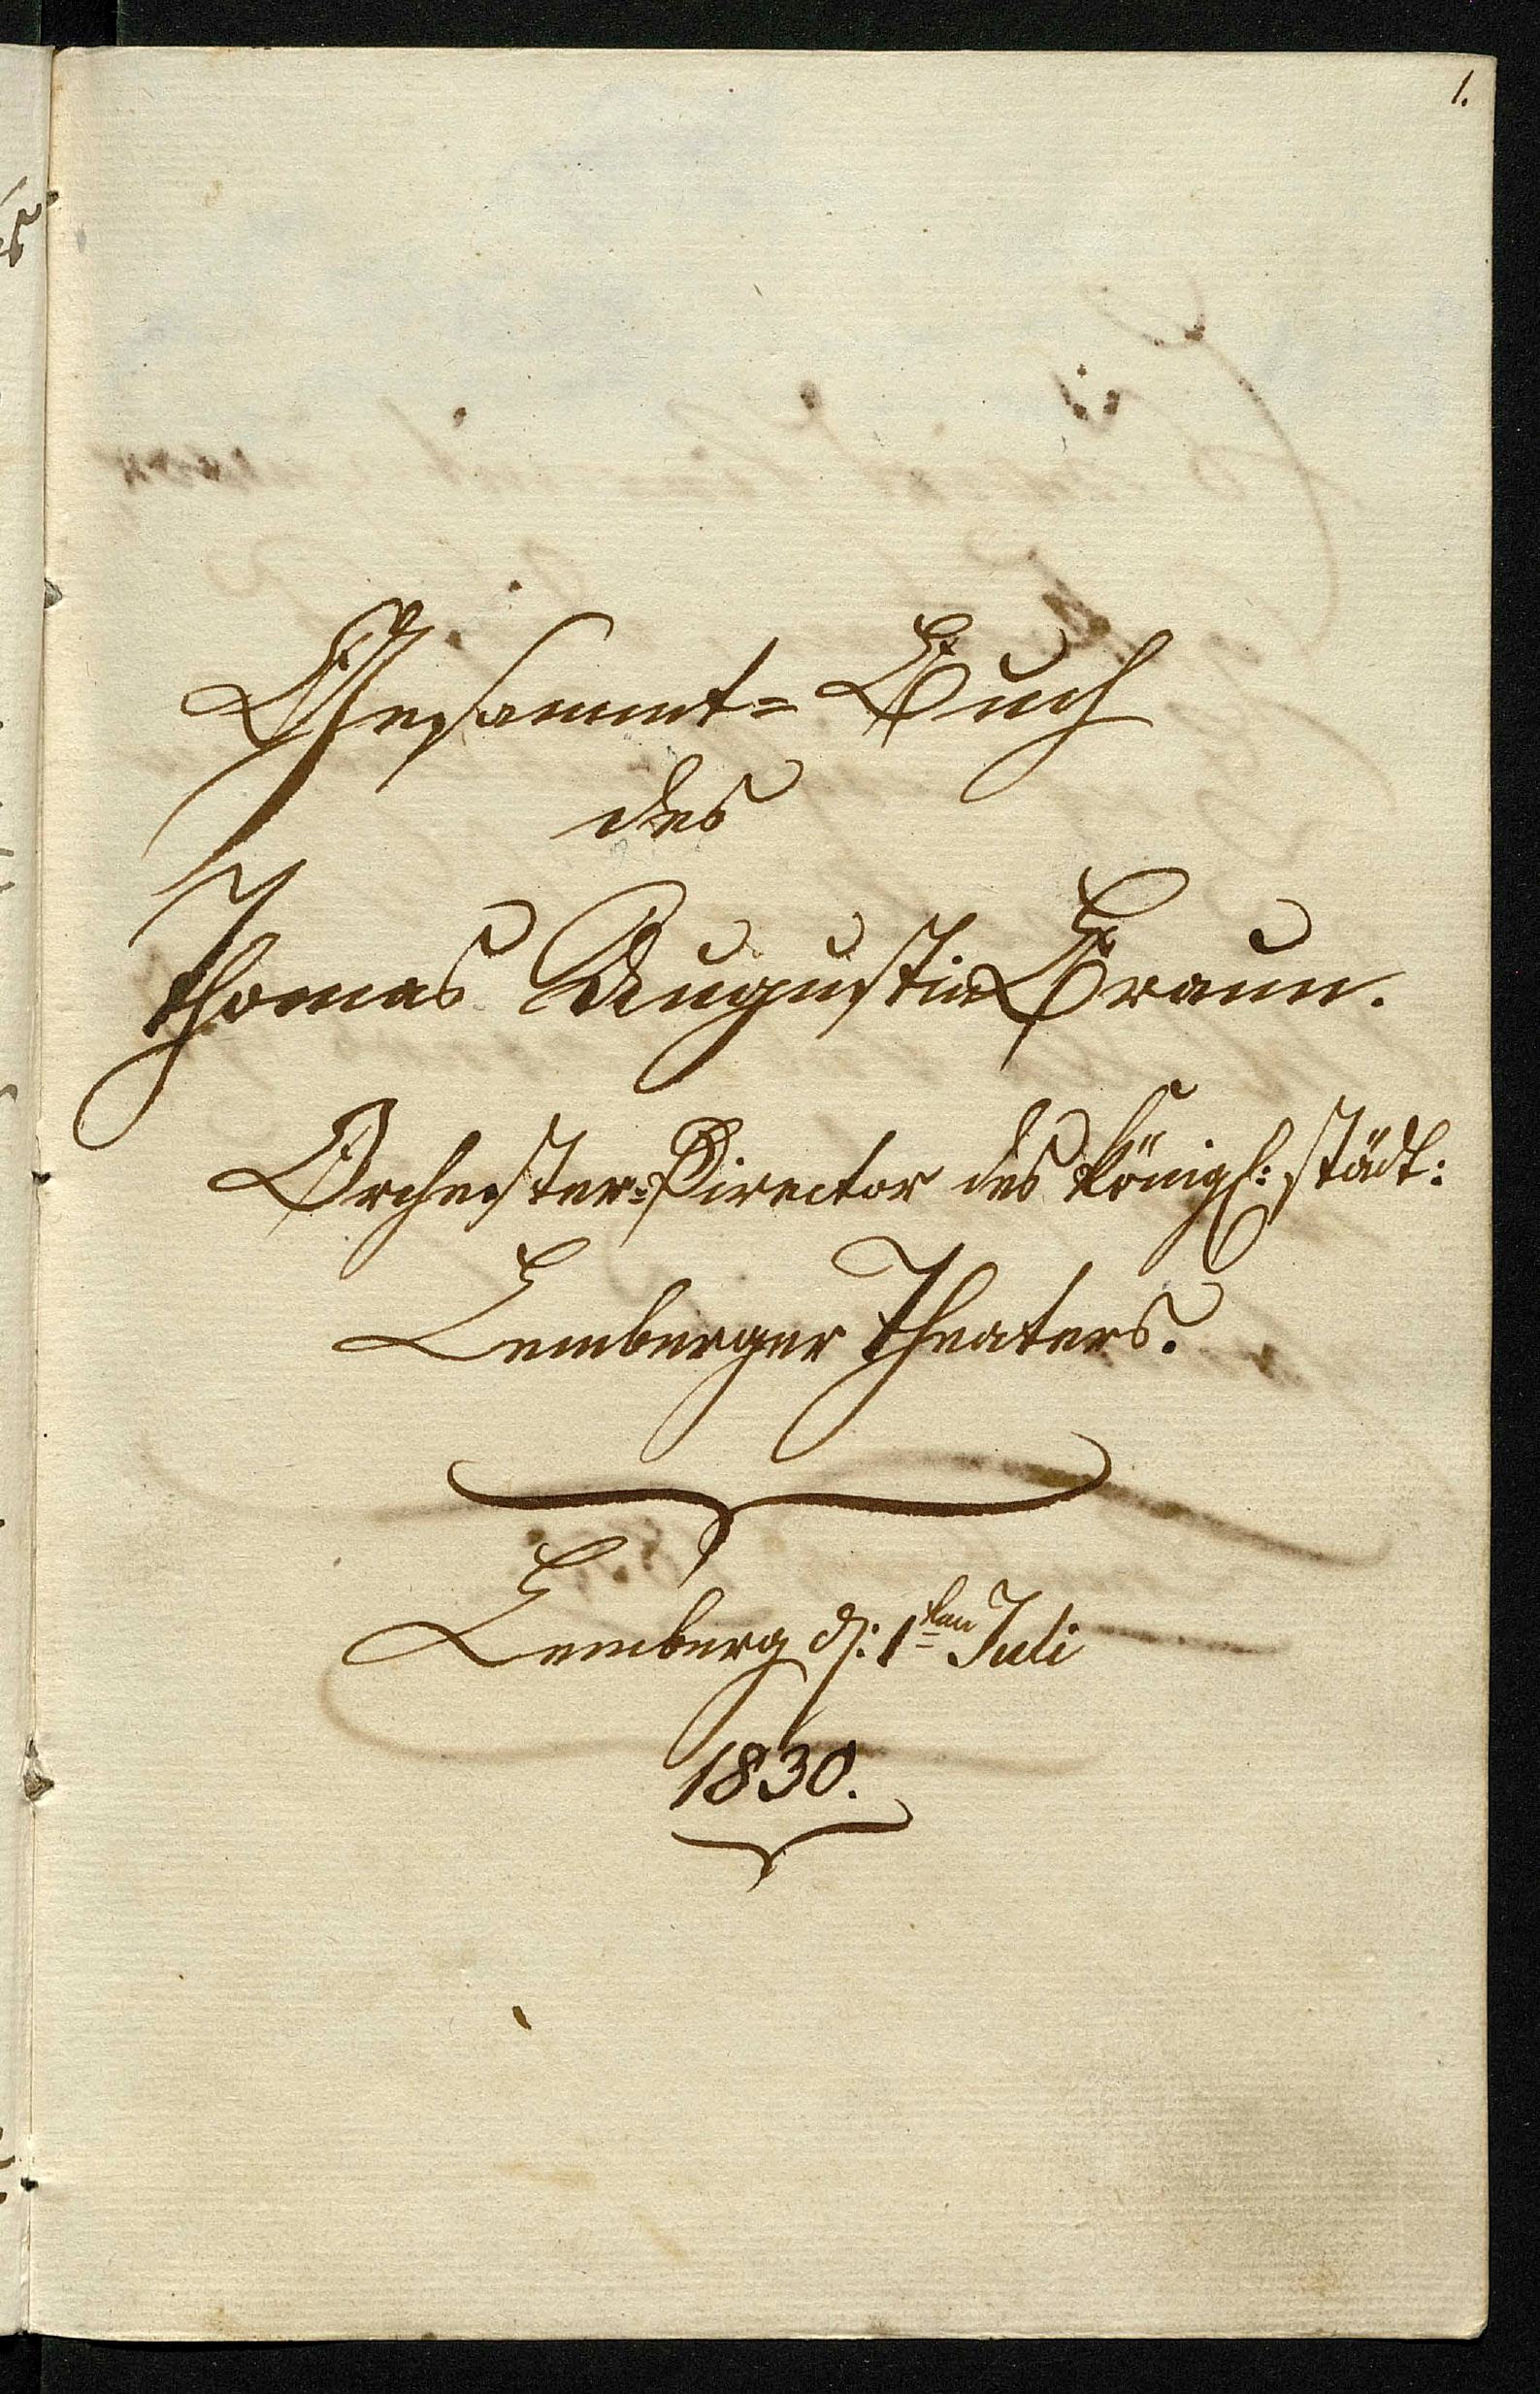 1.
Gesammt-Buch
des
Thomas Augustin Braun.
Orchester-Director des königl: städt:
Lemberger Theaters.
Lemberg d: 1ten Juli
1830.